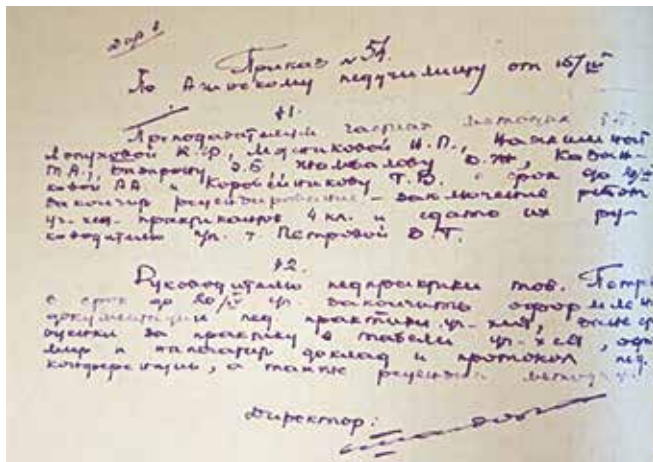 Приказ № 54
По Агинскому педучилищу от 15/IV
§1.
Преподавателям частных методик т.т.
Лопуховой К.Ф., Мясниковой Н.П.,
Т.А., Базарону Э.Б. Жамбалову Б.Ж., Казан-
ковой А.А. и Коробейникову Т.В. в срок до
закончить рецензирование – заключение
уч-ся практикантов 4 кл. и сдать их ру-
ководителю уп. т Петровой В.Т.
§2.
Руководителю педпрактики тов. Петр
в срок до 20/IV уп. закончить оформлен
документации пед. практики уч-хся,
оценки за практику в табели уч-хся,
мир и напечатать доклад и протокол пед.
конференции, а также рецензии
Директор: